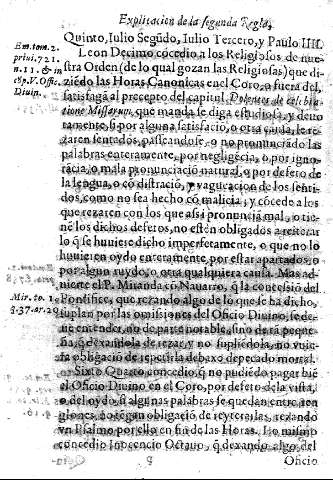 Explicacion de la segunda Regla,
Quinto, Iulio Segūdo, Iulio Tercero, y Paulo IIII.
Em. tom. 2.
priui. 721.
n. 11. & in
Diuin.
Leon Decimo cōcedio a los Religiosos de nue-
stra Orden (de lo qual gozan las Religiosas) que di-
ziēdo las Horas Canonicas en el Coro, o fuera del,
satisfagā al precepto del capitul. Dolentes de celebra-
tione Missarum, que manda se diga estudiosa, y deuo-
tamente, si por alguna satisfaciō, o otra causa, se re-
zaren sentados, passeandose, o no pronunciādo las
palabras enteramente, por negligēcia, o por igno-
rācia, o mala pronunciaciō natural, o por defeto de
la lengua, o cō distraciō, y vagueacion de los senti-
dos, como no sea hecho cō malicia; y cōcede a los
que rezaren con los que assi pronunciā mal, o tie-
nē los dichos defetos, no estēn obligados a reiterar
lo q̄ se huuiere dicho imperfetamente, o que no lo
huuierē oydo enteramente, por estar apartados, o
por algun ruydo, o otra qualquiera causa. Mas ad-
uierte el P. Miranda cō Nauarro, q̄ la concessiō del
Mir. to. 1.
q. 37. ar. 20
Pontifice, que rezando algo de lo que se ha dicho,
suplan por las omissiones del Oficio Diuino, se de-
ue entender, no de parte notable, sino de rā peque-
ña, q̄ dexandola de rezar, y no supliēdola, no vuie-
ra obligaciō de repetirla debaxo de pecado mortal.
Sixto Quarto concedio, q̄ no pudiēdo pagar biē
el Oficio Diuino en el Coro, por defeto de la vista,
o del oydo, si algunas palabras se quedan entre ren-
glones, no tēgan obligaciō de reyterarlas, rezando
vn Psalmo por ello en fin de las Horas. Lo mismo
concedio Inocencio Octauo, q̄ dexando algo del
8
Oficio